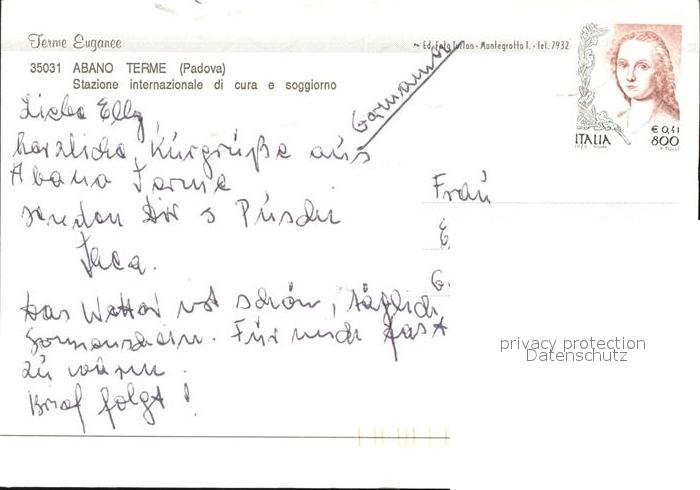 Terme Euganee
~ Ed. Foto - Montegrotto T. - Tel. 7932
35031 ABANO TERME (Padova)
Stazione internazionale di cura e soggiorno
Liebe Elly,
Germania
herzliche Kurgrüße aus
Abano Terme
senden Dir
Das Wetter ist schön, täglich
Sonnenschein. Für mich fast
zu warm.
Brief folgt!
Frau
E
G
ITALIA
€ 0,41
800
privacy protection
Datenschutz